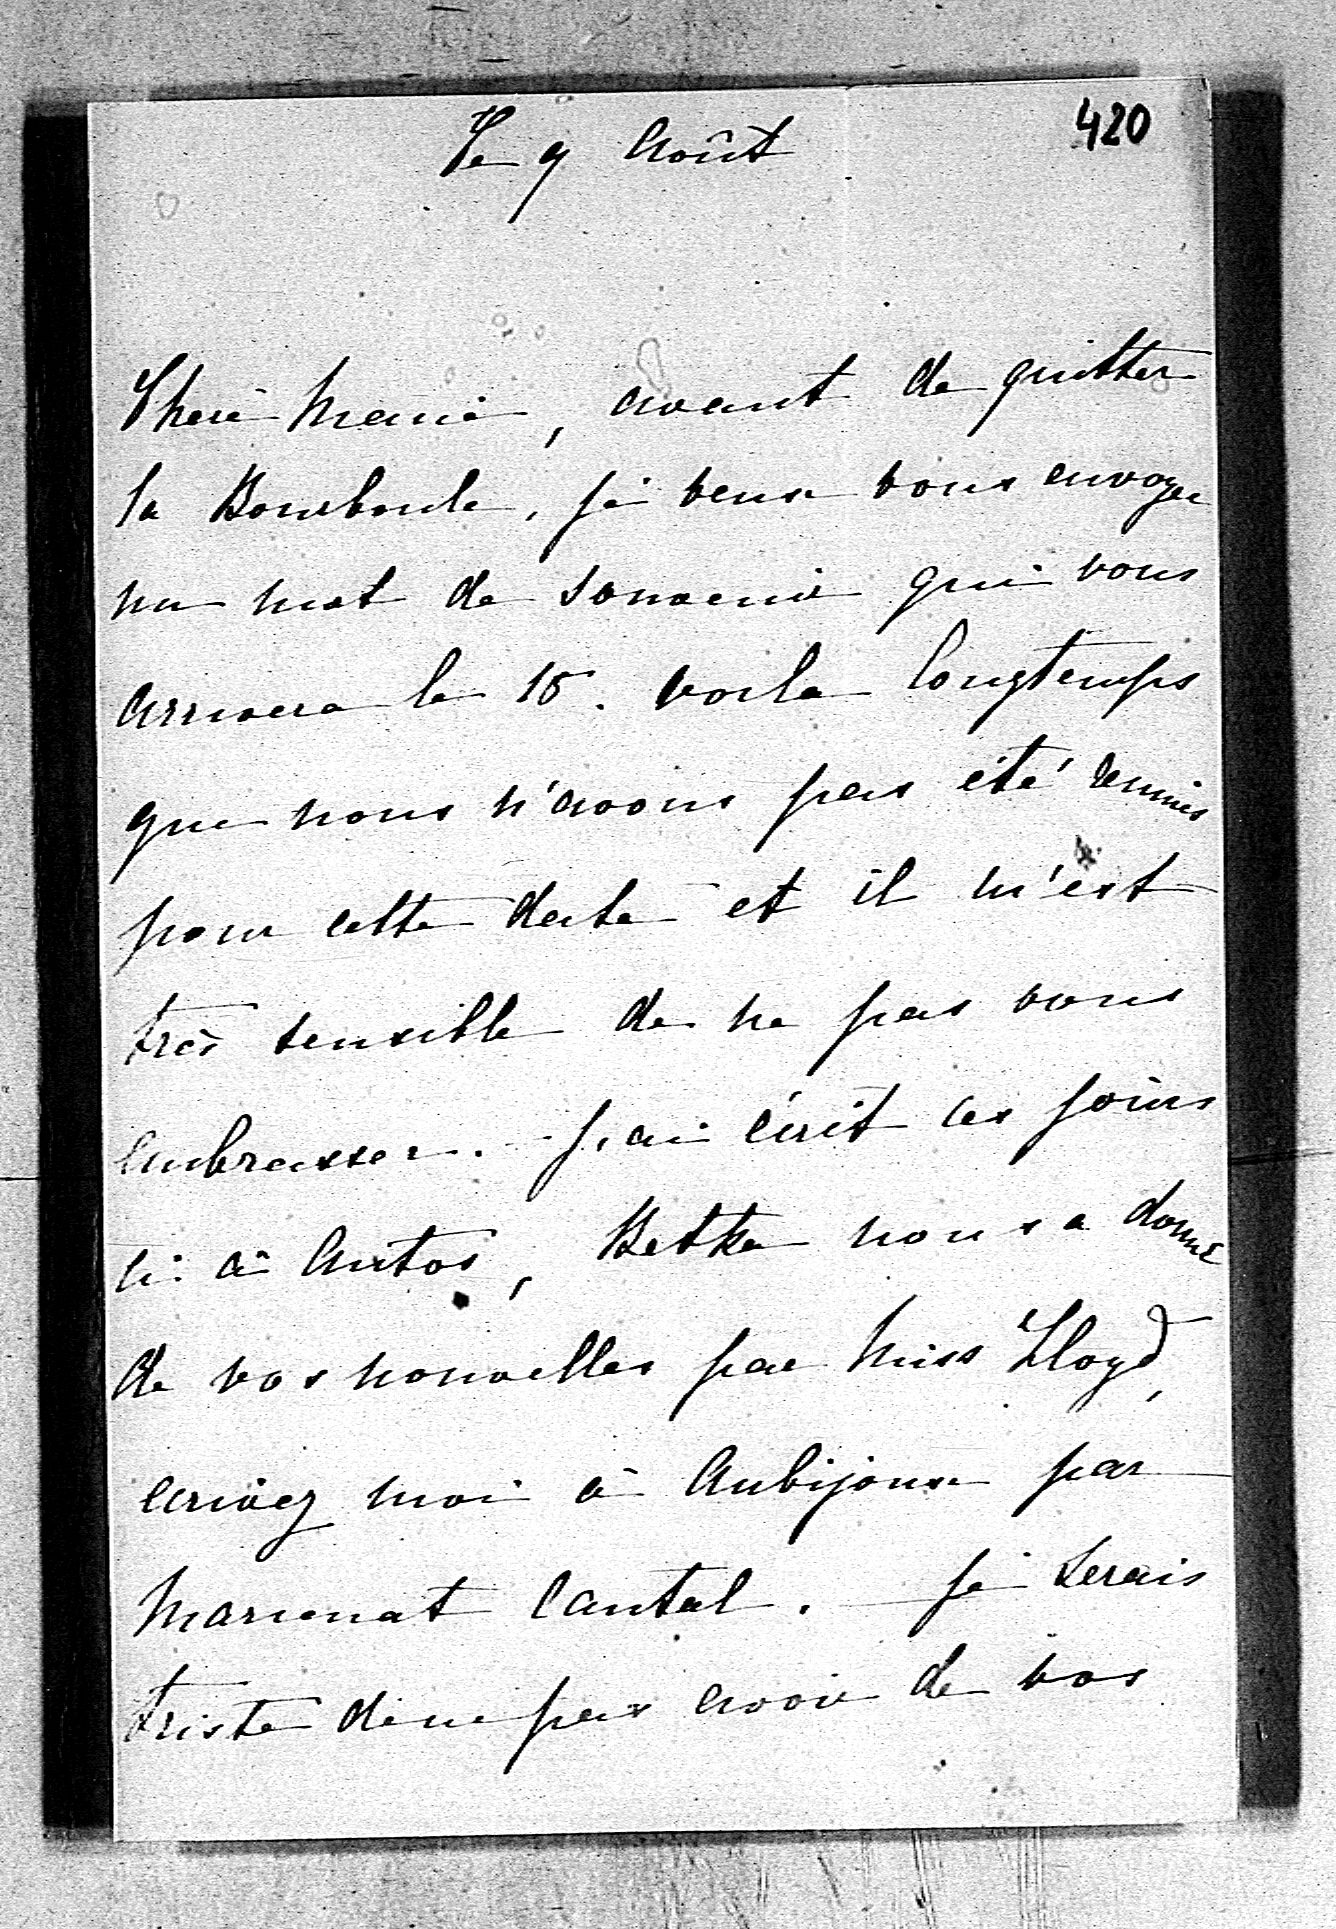 420
Le 9 Août
Cheré Manie, avant de quitter
la Bourboule, je veux vous envoyer
un mot de souvenir qui vous
arrivera le 15. voila longtemps
que nous n'avons pas été réunies
pour cette date et il m'est
très sensible de ne pas vous
embrasser. - J'ai écrit ces jours
ci à Antos, Betka nous a donné
de vos nouvelles par Miss Lloyd,
ecrivez moi à Aubijoux par
Marcenat Cantal. - je serais
triste de ne pas avoir de vos